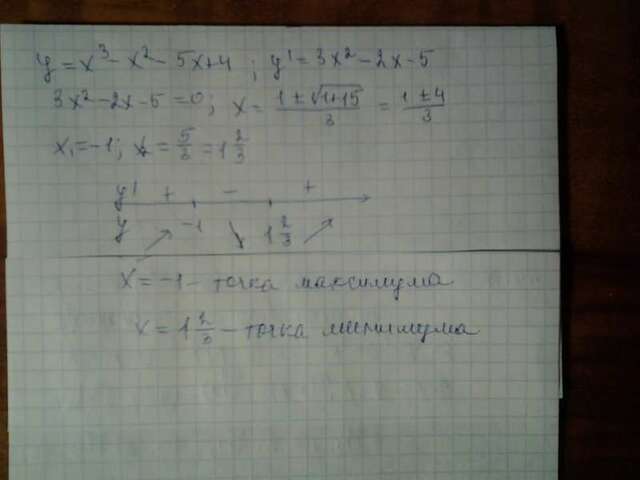 y = x³ - x² - 5x + 4 ; y' = 3x² - 2x - 5
3x² - 2x - 5 = 0 ; x = (1 ± √(1+15))/3 = (1 ± 4)/3
x₁ = -1 ; x = 5/3 = 1 2/3
y' + - +
y ↗ -1 ↘ 1 2/3 ↗
x = -1 - точка максимума
x = 1 2/3 - точка минимума